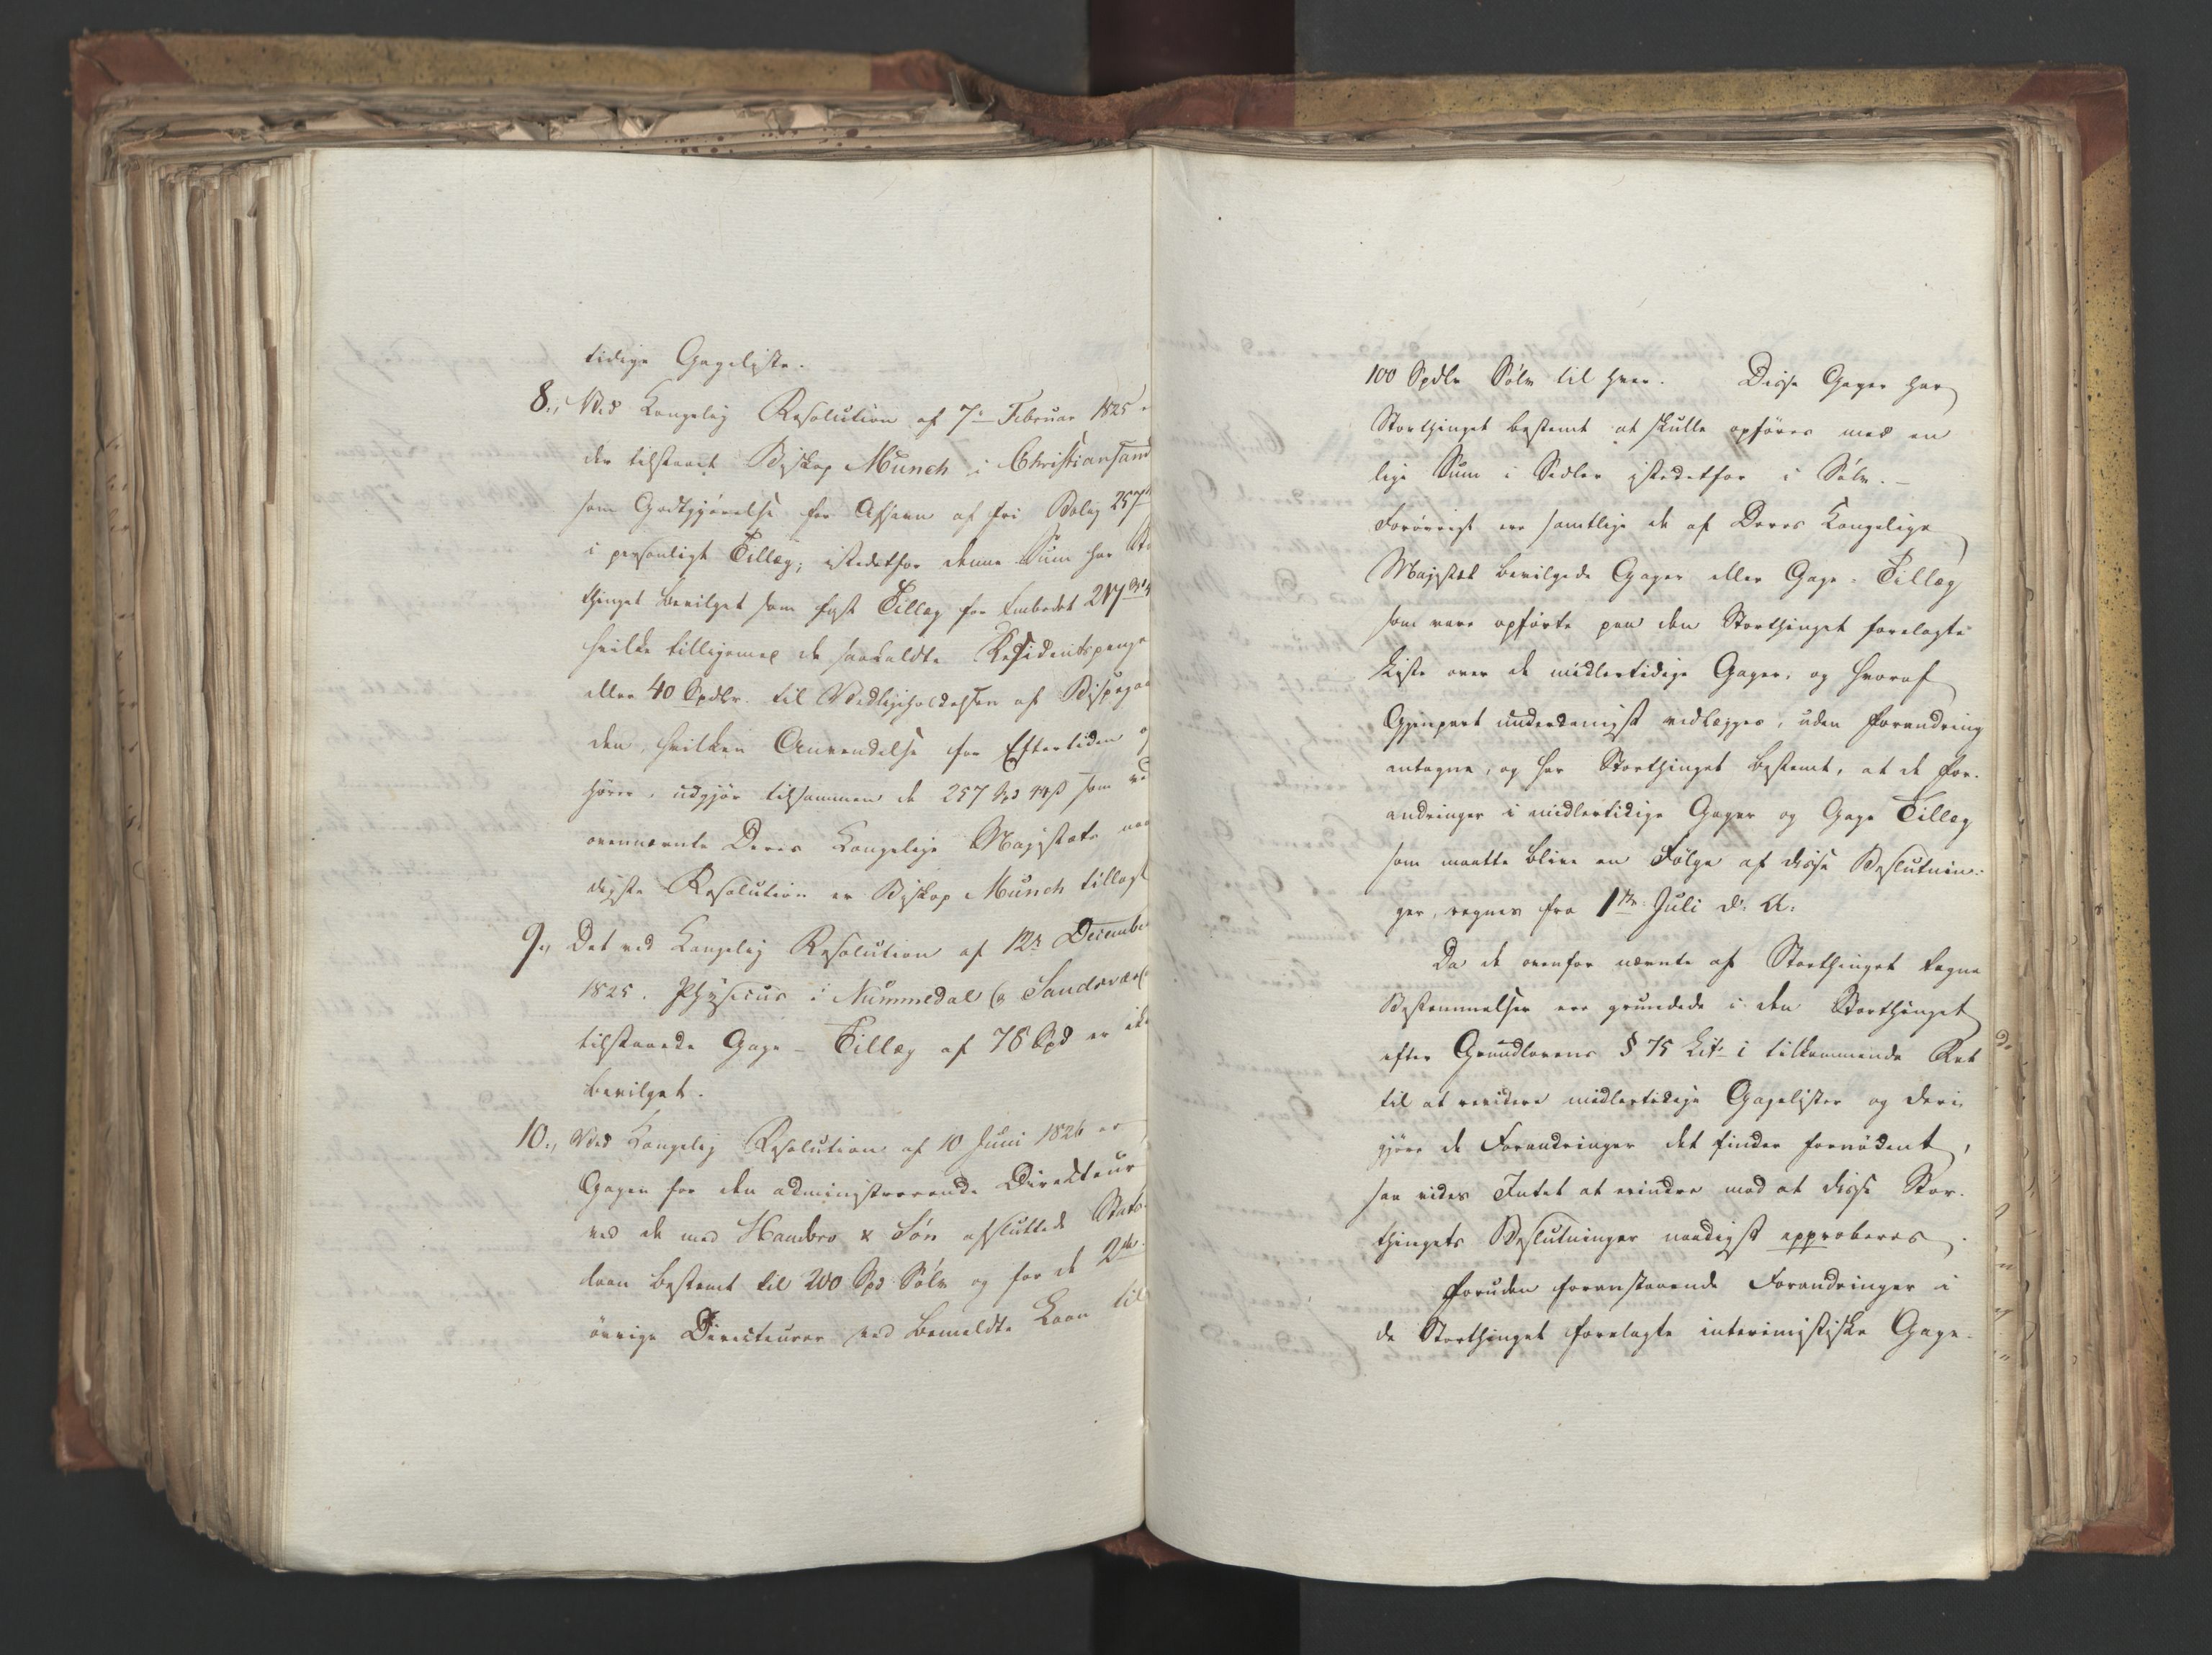 tidige Gageliste.
8., Ved Kongelig Resolution af 7de Februar 1825 e
der tilstaaet Biskop Munch i Christiansand
som Godtgjörelse for Afsavn af fri Bolig 257
i personligt Tillæg; istedetfor denne Sum har Sto
thinget bevilget som fast Tillæg for Embedet 217
hvilke tilligemed de saakaldte Residentspenge
eller 40 Spdlr. til Vedligeholdelsen af Bispegaar
den, hvilken Anvendelse for Eftertiden o
hörer, udgjör tilsammen de 257 Spd 44 ß som ved
ovennævnte Deres Kongelige Majestæts naa
digste Resolution er Biskop Munch tillagt
9., Det ved Kongelig Resolution af 12te Decembe
1825. Physicus i Nummedal og Sandsvær
tilstaaede Gage-Tillæg af 78 Spd er ikke
bevilget.
10., Ved Kongelig Resolution af 10 Juni 1826 er
Gagen for den administrerende Directeur
ved de med Hambro & Sön afsluttede Stats-
laan bestemt til 200 Spd Sölv og for de 2de
övrige Directeurer ved bemeldte Laan til
100 Spdlr Sölv til hver. Disse Gager har
Storthinget bestemt at skulle opföres med en
lige Sum i Sedler istedetfor i Sölv. –
Forövrigt ere samtlige de af Deres Kongelige
Majestæt bevilgede Gager eller Gage-Tillæg
som vare opförte paa den Storthinget forelagte
Liste over de midlertidige Gager, og hvoraf
Gjenpart underdanigst vedlægges, uden Forandring
antagne, og har Storthinget bestemt, at de For-
andringer i midlertidige Gager og Gage Tillæg
som maatte blive en Fölge af disse Beslutnin-
ger, regnes fra 1ste Juli d. A.
Da de ovenfor nævnte af Storthinget tagne
Bestemmelser ere grundede i den Storthinget
efter Grundlovens § 75 Lit. i tilkommende Ret
til at revidere midlertidige Gagelister og deri
gjöre de Forandringer det finder fornödent,
saa vides Intet at erindre mod at disse Stor-
thingets Beslutninger naadigst approberes.
Foruden foranstaaende Forandringer i
de Storthinget forelagte interimistiske Gage-